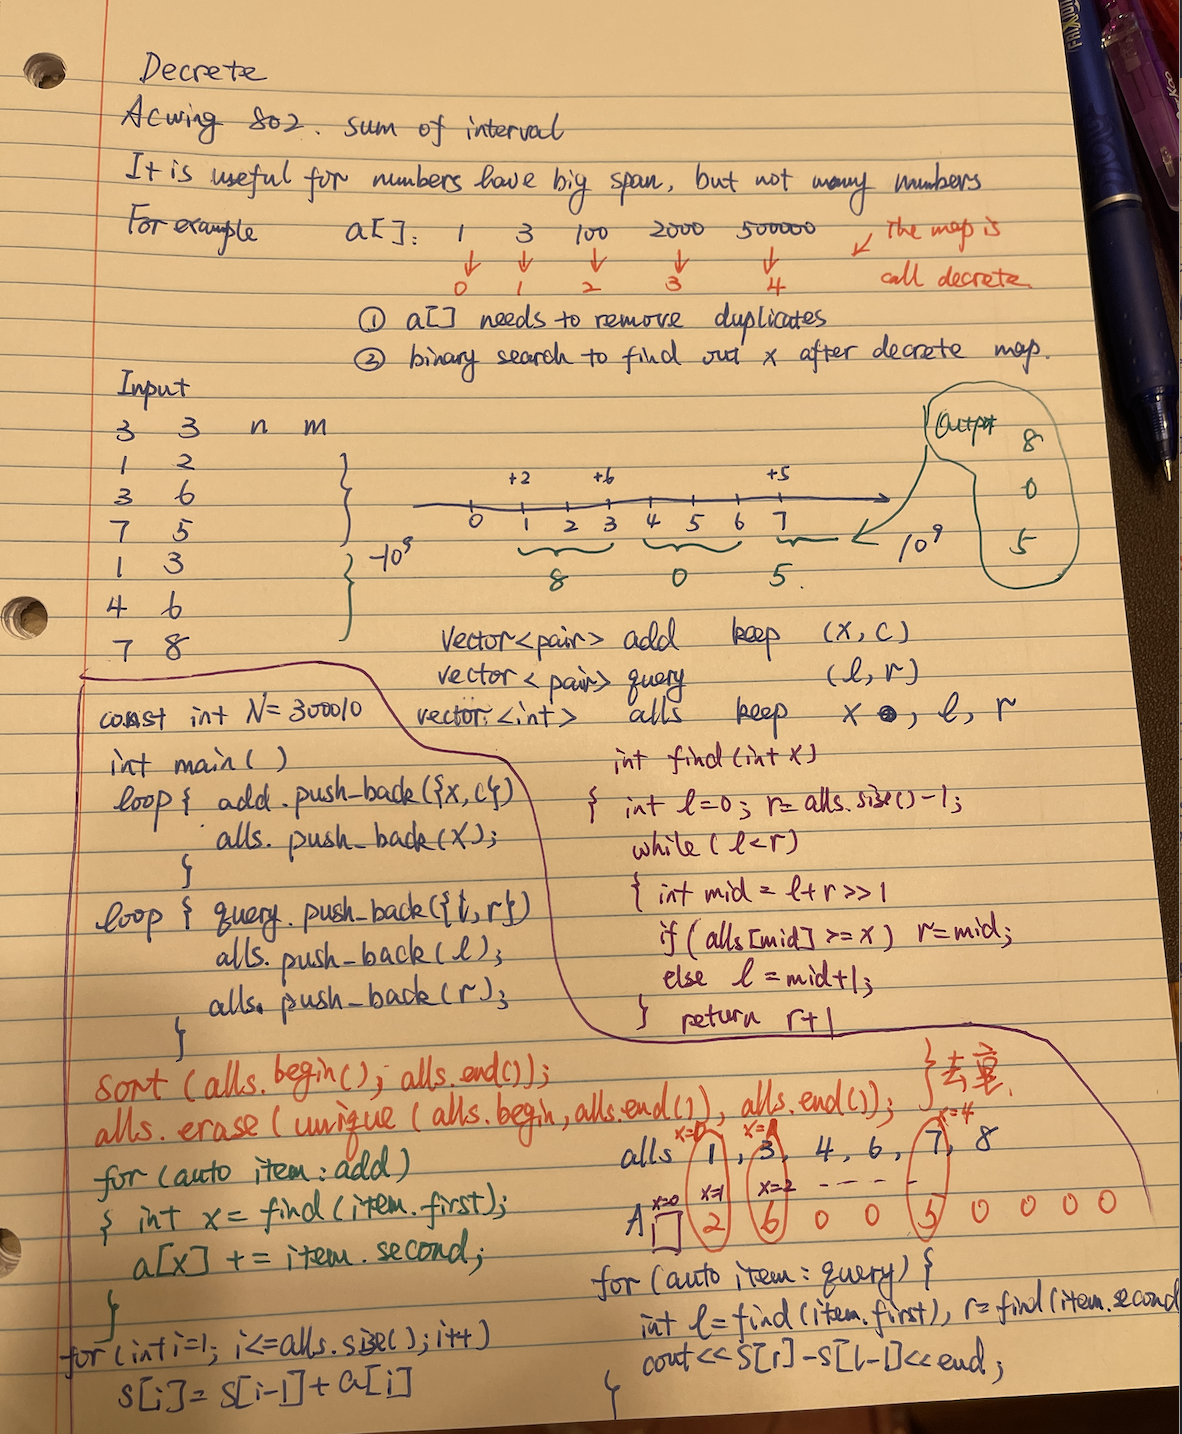 Decrete
Acwing 802. sum of interval
It is useful for numbers have big span, but not many numbers
For example a[]: 1 3 100 2000 500000 the map is
0 1 2 3 4 call decrete
① a[] needs to remove duplicates
② binary search to find out x after decrete map.
Input
3 3 n m
1 2
3 6
7 5
1 3
4 6
7 8
+2 +6 +5
0 1 2 3 4 5 6 7
-10⁹ 10⁹
8 0 5.
Output
8
0
5
vector<pair> add keep (x, c)
vector<pair> query (l, r)
vector<int> alls keep x, l, r
const int N=300010
int main()
loop{ add.push_back({x,c})
alls.push_back(x);
}
loop { query.push_back({l,r})
alls.push_back(l);
alls.push_back(r);
}
int find(int x)
{ int l=0; r=alls.size()-1;
while(l<r)
{ int mid = l+r>>1
if(alls[mid]>=x) r=mid;
else l=mid+1;
} return r+1
sort(alls.begin(); alls.end());
alls.erase(unique(alls.begin,alls.end()), alls.end()); } 去重.
for(auto item:add)
{ int x = find(item.first);
a[x] += item.second;
}
for(int i=1; i<=alls.size();i++)
s[i]= s[i-1]+a[i]
x=0 x=1 x=4
alls 1, 3, 4, 6, 7, 8
x=0 x=1 x=2 - - - - -
A 2 6 0 0 5 0 0 0 0
for(auto item: query){
int l=find(item.first), r=find(item.second
cout<<s[r]-s[l-1]<<end;
}
FRIXION